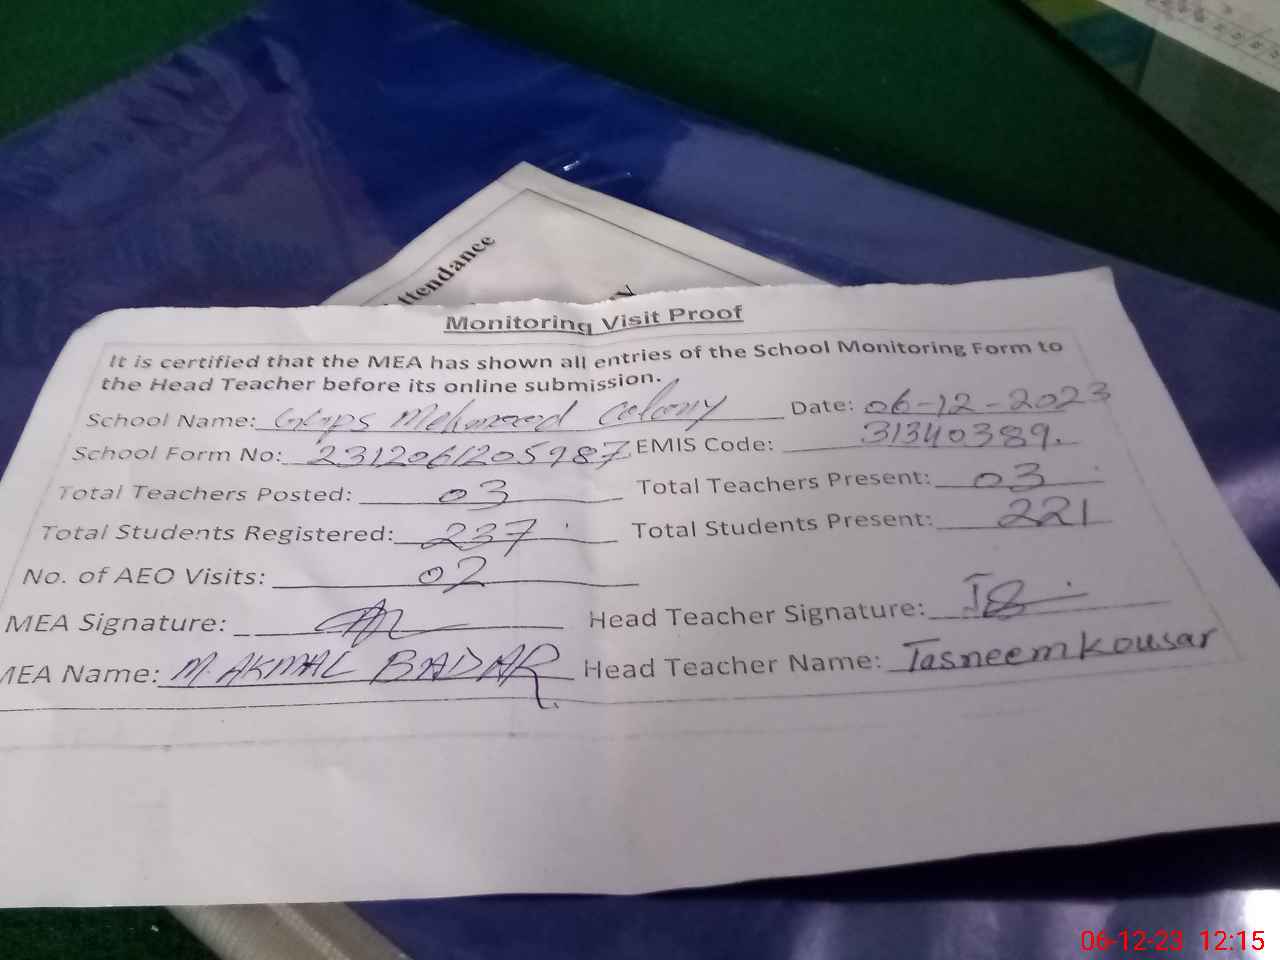 ttendance
Monitoring Visit Proof
It is certified that the MEA has shown all entries of the School Monitoring Form to
the Head Teacher before its online submission.
School Name: Ggps Mehmood Colony Date: 06-12-2023
School Form No: 2312061205987 EMIS Code: 31340389.
Total Teachers Posted: 03 Total Teachers Present: 03
Total Students Registered: 237 Total Students Present: 221
No. of AEO Visits: 02
MEA Signature: Head Teacher Signature:
MEA Name: M. AKMAL BADAR Head Teacher Name: Tasneem Kousar
06-12-23 12:15